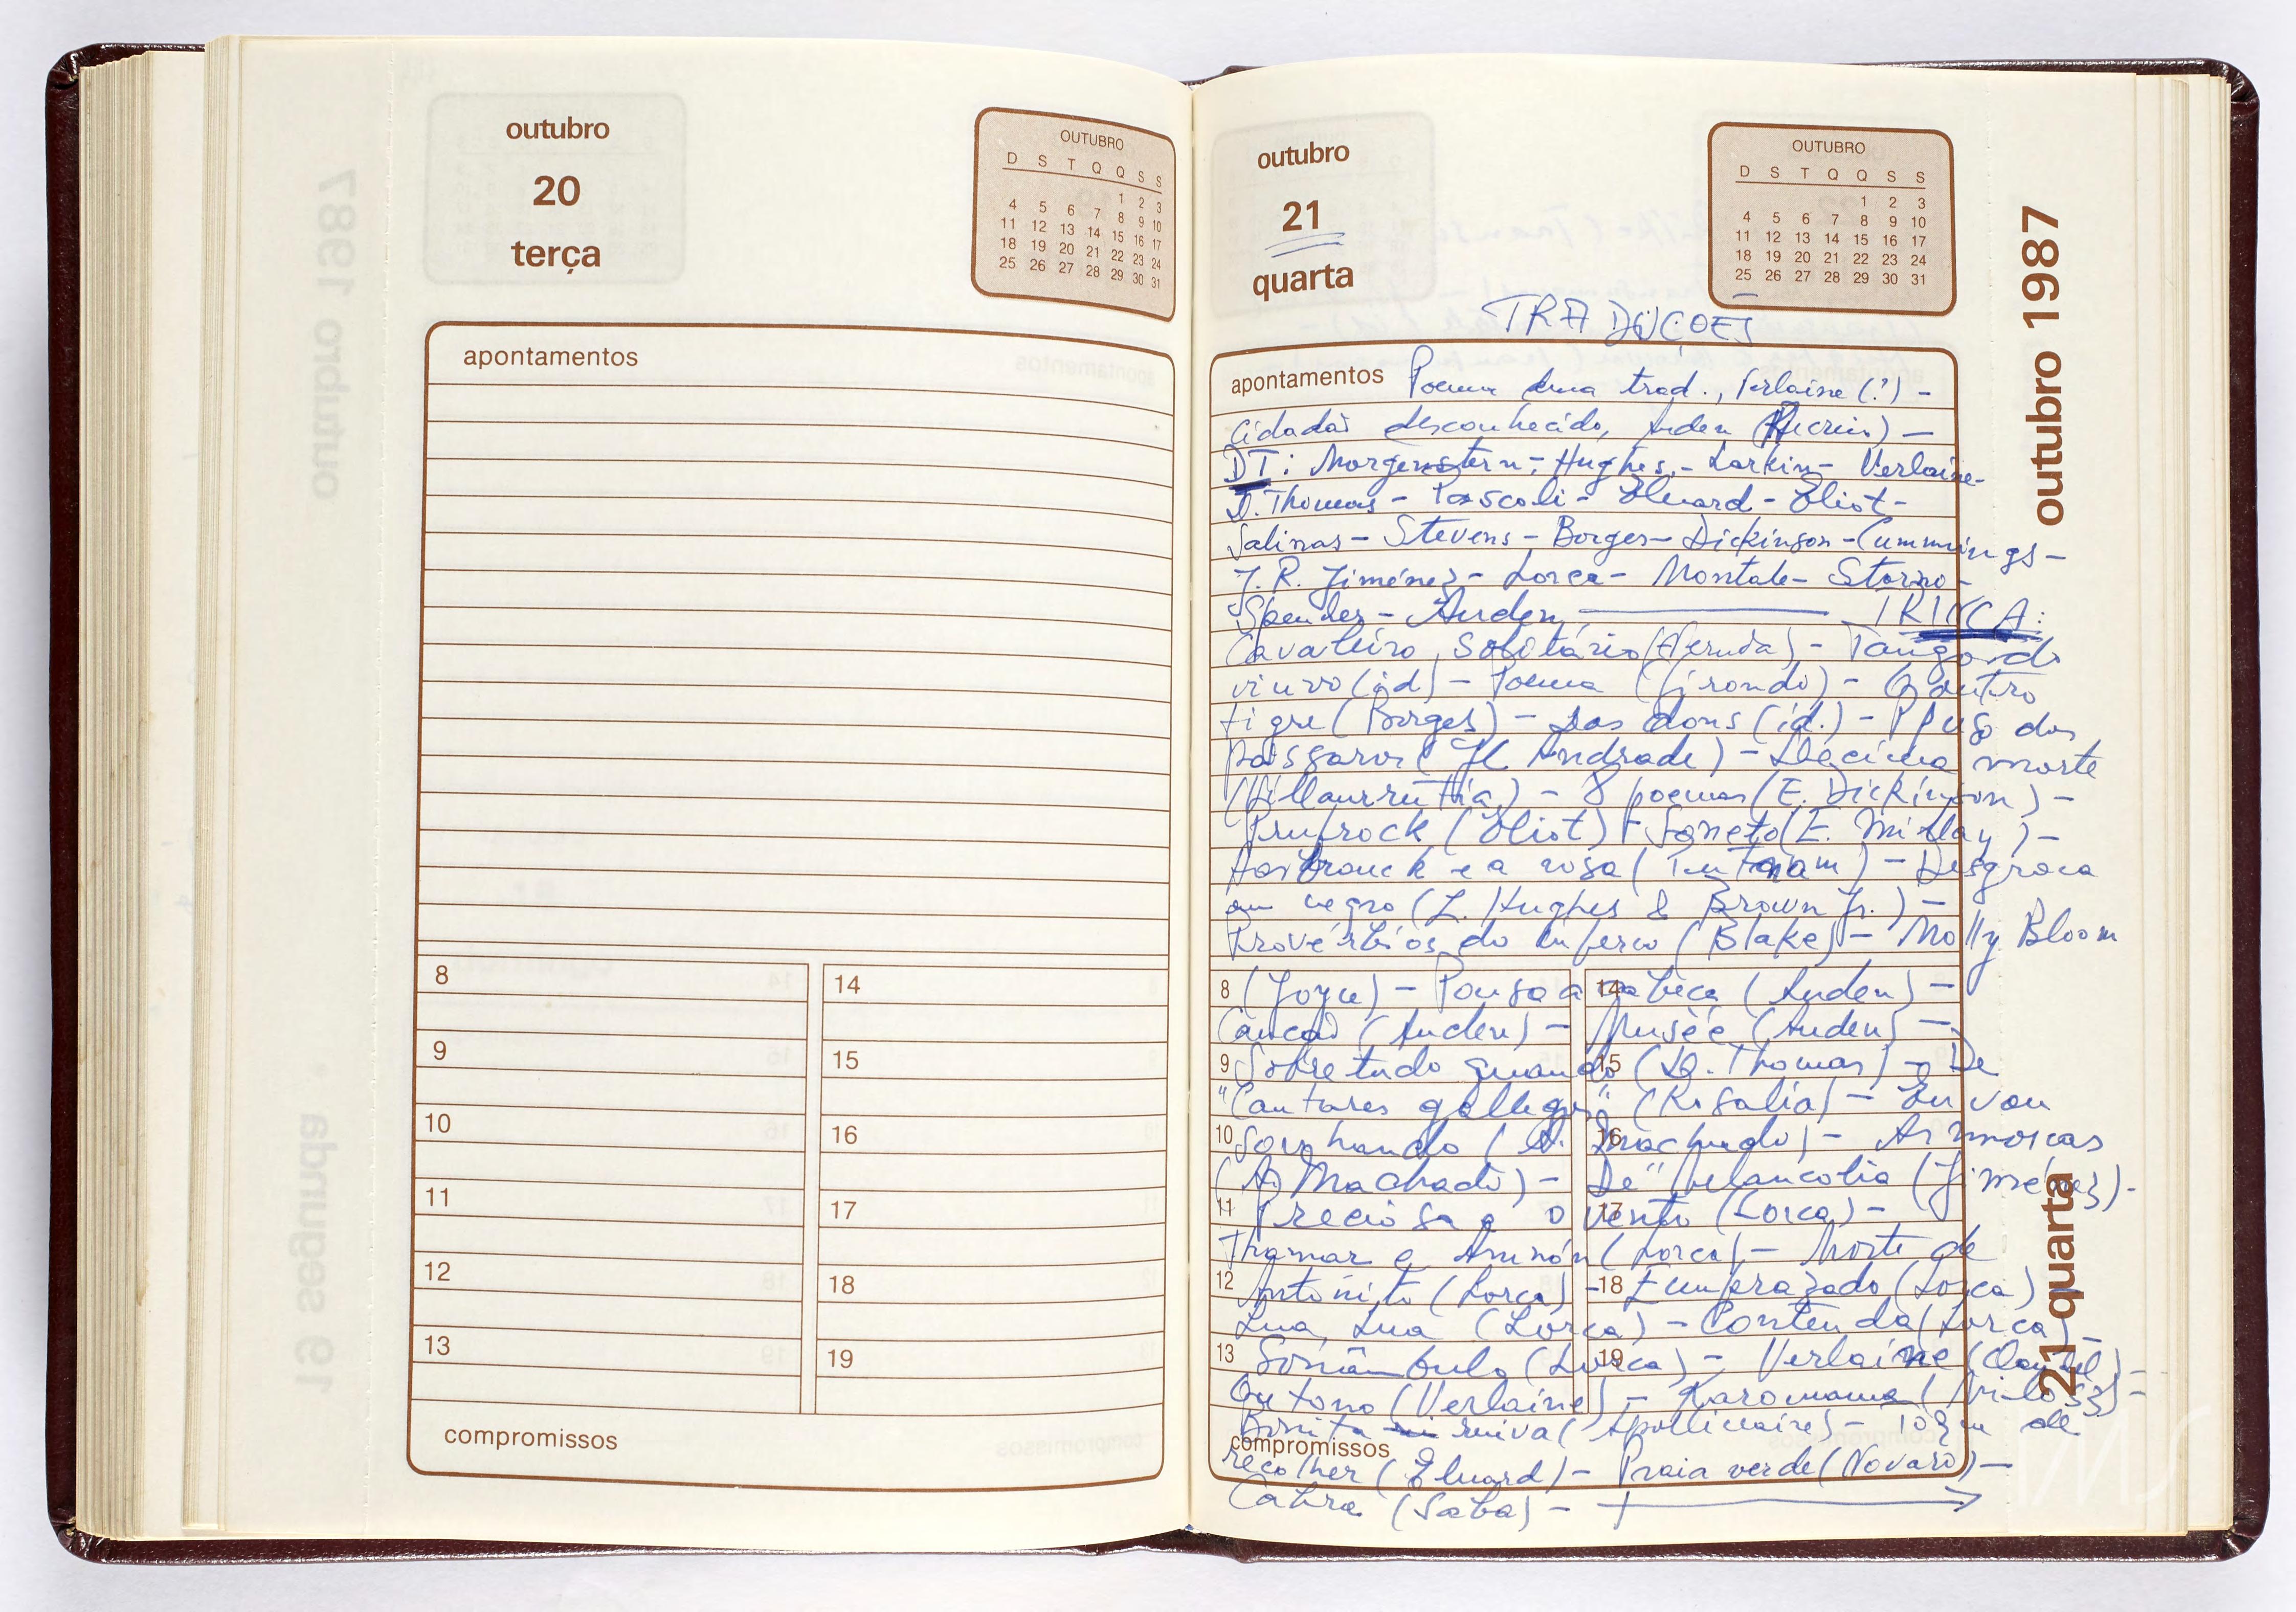 outubro
20
terça
OUTUBRO
D S T Q Q S S
1 2 3
4 5 6 7 8 9 10
11 12 13 14 15 16 17
18 19 20 21 22 23 24
25 26 27 28 29 30 31
apontamentos
8 14
9 15
10 16
11 17
12 18
13 19
compromissos
outubro
21
quarta
OUTUBRO
D S T Q Q S S
1 2 3
4 5 6 7 8 9 10
11 12 13 14 15 16 17
18 19 20 21 22 23 24
25 26 27 28 29 30 31
outubro 1987
21 quarta
TRADUÇÕES
apontamentos Poema trad., Verlaine (?) –
Cidadão desconhecido, Auden –
DI: Morgenstern – Hughes – Larkin – Verlaine –
D. Thomas – Pascoli – Eluard – Eliot –
Salinas – Stevens – Borges – Dickinson – Cummings –
J. R. Jiménez – Lorca – Montale – Storno –
Spender – Auden, —
Cavaleiro solitário (Neruda) – Tango do
viuvo (id) – Poema (Girondo) – O outro
tigre (Borges) – Dos dons (id.) – dos
pássaros (Andrade) – Décima morte
(Villaurrutia) – 8 poemas (E. Dickinson) –
Prufrock (Eliot) – Soneto (E. Millay) –
Hasbrouck e a rosa (Putnam) – Desgraça
negro (L. Hughes & Brown Jr.) –
Provérbios do inferno (Blake) – Molly Bloom
8 (Joyce) – Pousa a 14 cabeça (Auden) –
Canção (Auden) – Musée (Auden) –
9 Sobretudo quando 15 (D. Thomas) – De
"Cantares gallegos" (Rosalía) – Eu vou
10 Sonhando (A. 16 Machado) – As moscas
(A. Machado) – De "Melancolia (Jiménez) –
11 Preciosa e o 17 vento (Lorca) –
Thamar e Amnón (Lorca) – Morte de
12 Antoñito (Lorca) – 18 Emprazado (Lorca)
Lua, Lua (Lorca) – Contenda (Lorca) –
13 Sonâmbulo (Lorca) 19 – Verlaine (Claudel) –
Outono (Verlaine) – Karomama (Milosz) –
Bonita ruiva (Apollinaire) – Toque de
compromissos
recolher (Eluard) – Praia verde (Novaro) –
Cabra (Saba) – + →